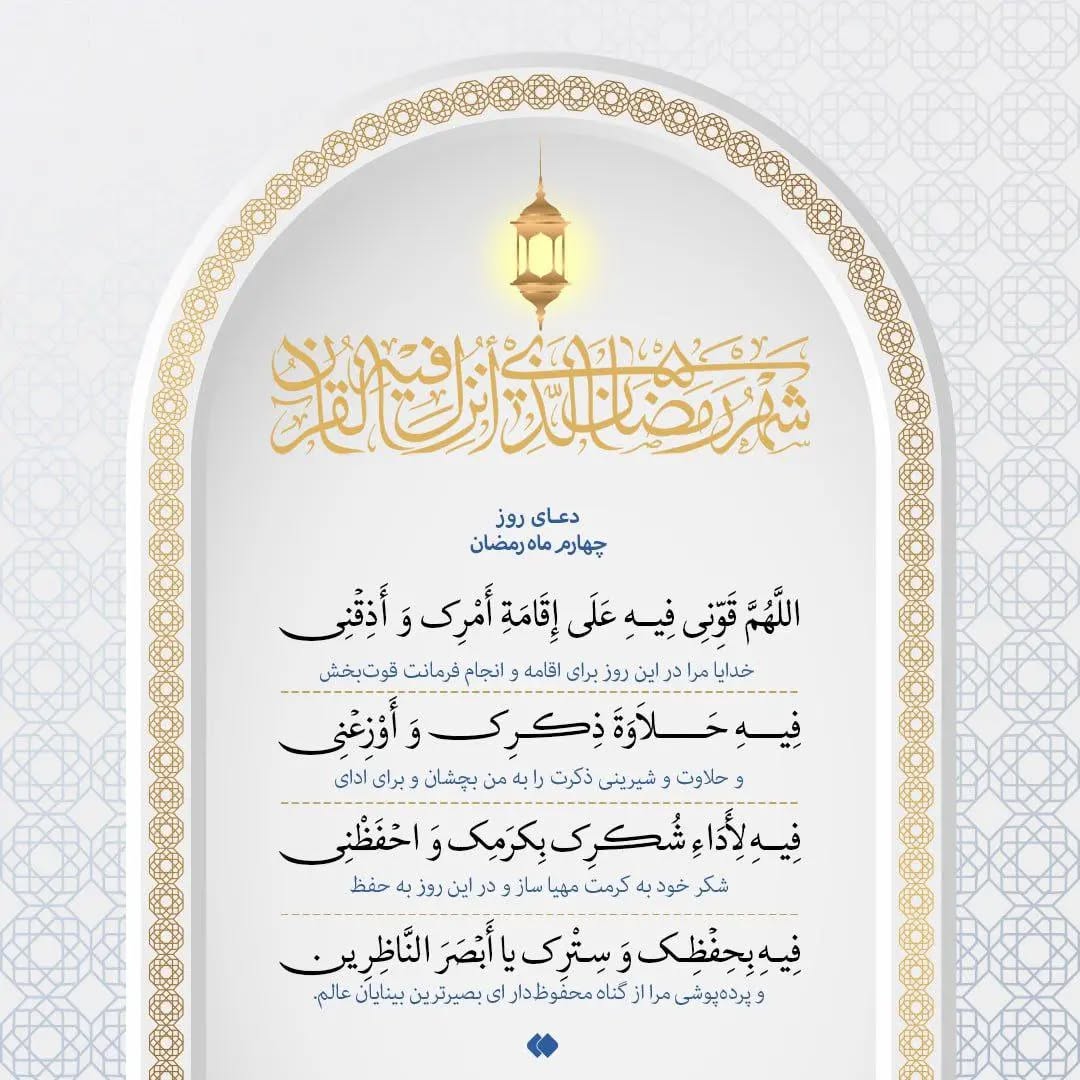 شَهْرُ رَمَضَانَ الَّذِي أُنْزِلَ فِيهِ الْقُرْآنُ
دعای روز
چهارم ماه رمضان
اللَّهُمَّ قَوِّنِی فِیهِ عَلَی إِقَامَةِ أَمْرِک وَ أَذِقْنِی
خدایا مرا در این روز برای اقامه و انجام فرمانت قوت‌بخش
فِیهِ حَلاَوَةَ ذِکرِک وَ أَوْزِعْنِی
و حلاوت و شیرینی ذکرت را به من بچشان و برای ادای
فِیهِ لِأَدَاءِ شُکرِک بِکرَمِک وَ احْفَظْنِی
شکر خود به کرمت مهیا ساز و در این روز به حفظ
فِیهِ بِحِفْظِک وَ سِتْرِک یا أَبْصَرَ النَّاظِرِین
و پرده‌پوشی مرا از گناه محفوظ‌دار ای بصیرترین بینایان عالم.